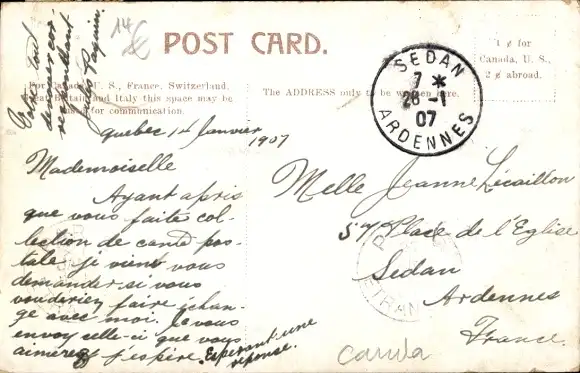 POST CARD.
14 €
For Canada, U. S., France, Switzerland,
Great Britain and Italy this space may be
used for communication.
The ADDRESS only to be written here.
1 ¢ for
Canada, U. S.,
2 ¢ abroad.
SEDAN
7 *
28 -1
07
ARDENNES
Quebec 14 Janvier
1907
Mademoiselle
Ayant apris
que vous faite col-
lection de carte pos-
tale je viens vous
demander si vous
vouderiez faire échan-
ge avec moi. Je vous
envoy celle-ci que vous
aimerez j'espère. Esperant une
réponse.
Votre tout
correspondant
Jos Paquin.
Melle Jeanne Lécaillon
57 Place de l'Eglise
Sedan
Ardennes
France.
ETRAN